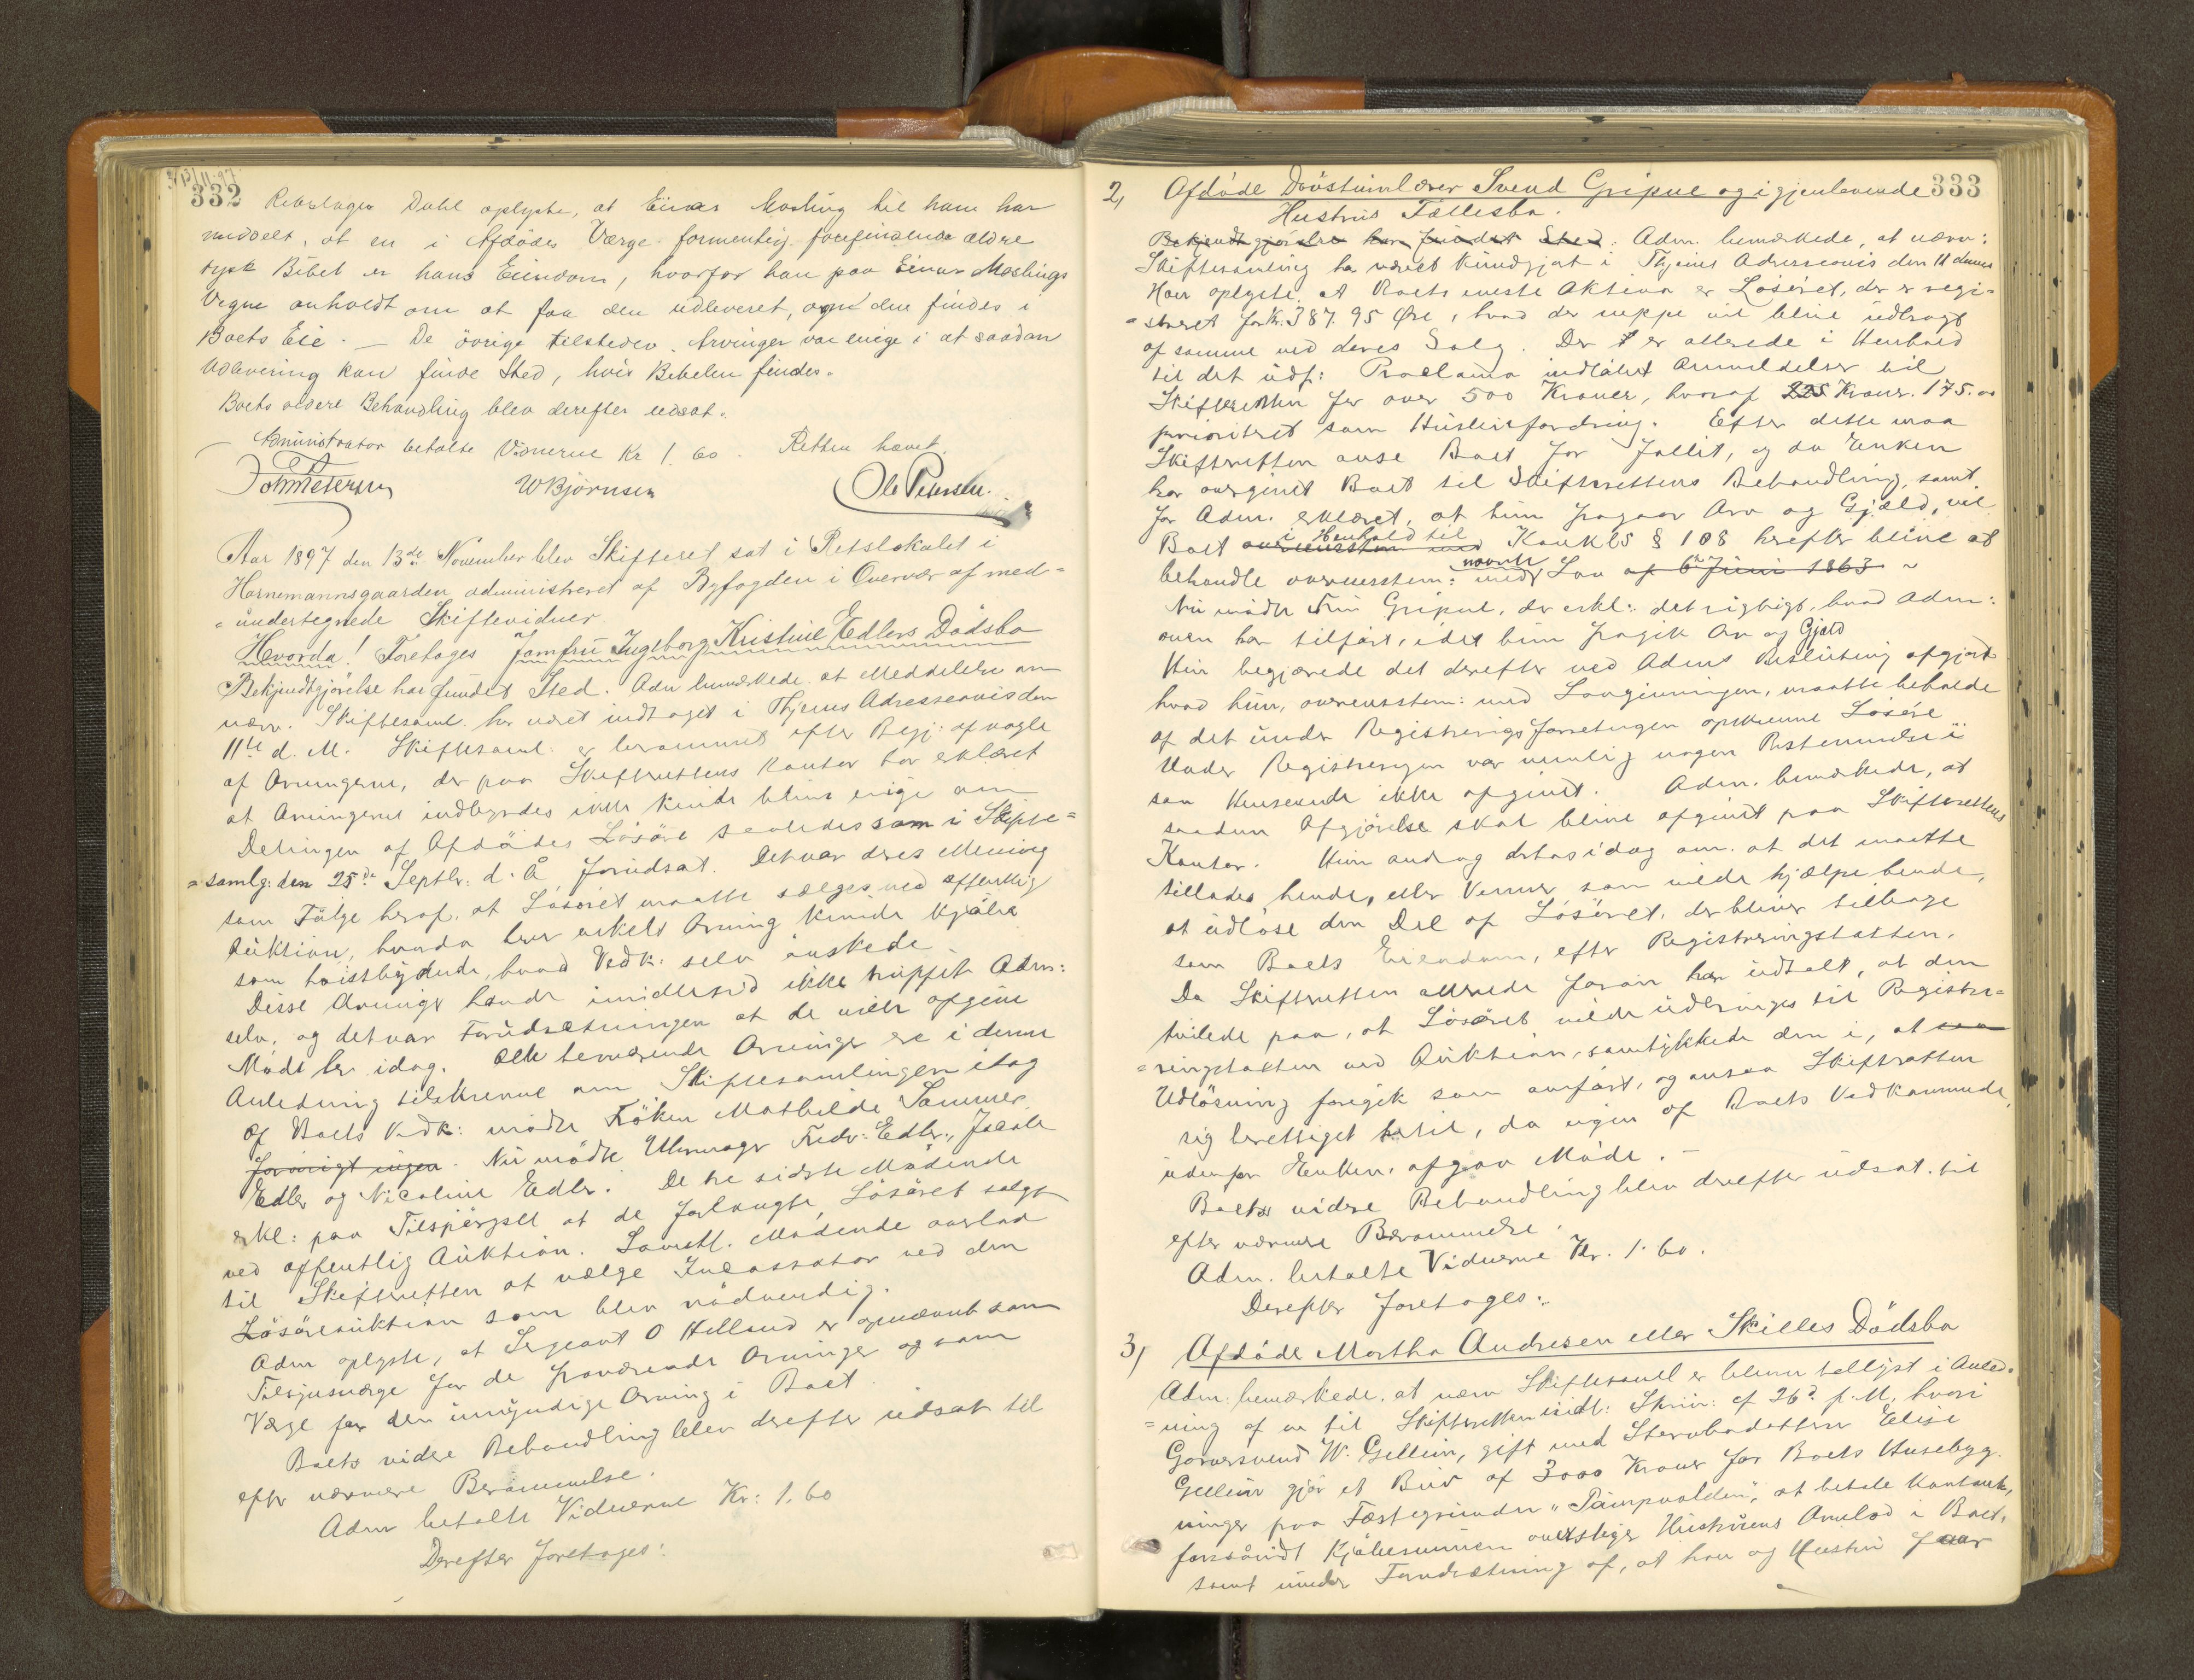 332
Rebslager Dahl oplyste, at Einar Mosling til ham har
meddelt, at en i Afdødes Værge formentlig forefindende ældre
tysk Bibel er hans Eiendom, hvorfor han paa Einar Moslings
Vegne anholdt om at faa den udleveret, om den findes i
Boets Eie. — De övrige tilstedev. Arvinger var enige i at saadan
Udlevering kan finde Sted, hvis Bibelen findes.
Boets videre Behandling blev derefter udsat.
Administrator betalte Vidnerne Kr 1.60. Retten hævet.
WBjörnsen Ole Petersen.
Aar 1897 den 13de November blev Skifteret sat i Retslokalet i
Hornemannsgaarden administreret af Byfogden i Overvær af med=
=undertegnede Skiftevidner.
Hvorda! Foretoges Jomfru Ingeborg Kristine Edlers Dødsbo
Bekjendtgjörelse har fundet Sted. Adm bemærkede at Meddelelse om
nærv. Skiftesaml. har været indtaget i Thjems Adresseavis den
11te d. M. Skiftesaml: er berammet efter Begj: af nogle
af Arvingerne, der paa Skifterettens Kontor har erklæret
at Arvingerne indbyrdes ikke kunde blive enige om
Delingen af Afdödes Lösöre saaledes som i Skifte=
=samlg: den 25de Septbr: d. Å forudsat. Det var deres Mening
som Fölge heraf, at Lösöret maatte sælges ved offentlig
Auktion, hvorda hver enkelt Arving kunde kjöbe
som höistbydende, hvad Vedk: selv önskede.
Disse Arvinger havde imidlertid ikke truffet Adm:
selv, og det var Forudsætningen at de vilde afgive
Möde her idag. Alle herværende Arvinger ere i denne
Anledning tilskrevne om Skiftesamlingen idag
Af Boets Vedk: mödte Fröken Mathilde Sommer
forövrigt ingen. Nu mödte Uhrmager Fredr: Edler, Jacob
Edler og Nicoline Edler. De tre sidste Mödende
erkl: paa Tilspörgsel at de forlangte, Lösöret solgt
ved offentlig Auktion. Samtl. Mödende overlod
til Skifteretten at vælge Incassator ved den
Lösöreauktion som blev nödvendig.
Adm oplyste, at Sergeant O Helland er opnævnt som
Tilsynsværge for de fraværende Arvinger og som
Værge for den umyndige Arving i Boet.
Boets videre Behandling blev derefter udsat til
efter nærmere Berammelse.
Adm betalte Vidnerne Kr: 1.60
Derefter foretoges:
333
2, Afdöde Svend Gripne og igjenlevende
Hustrus Fællesbo.
Bekjendtgjörelse har fundet Sted. Adm. bemærkede, at nærv:
Skiftesamling har været kundgjort i Thjems Adresseavis den 11 dennes
Han oplyste, at Boets eneste Aktiva er Lösöret, der er regi=
=streret for Kr. 387.95 Öre, hvad der neppe vil blive udbragt
af samme ved deres Salg. Der er allerede i Henhold
til det udf: Proclama indlöbet Anmeldelser til
Skifteretten for over 500 Kroner, hvoraf 225 Kroner. 175.00
prioriteret som Husleiefordring. Efter dette maa
Skifteretten anse Boet for fallit, og da Enken
har overgivet Boet til Skifterettens Behandling, samt
for Adm. erklæret, at hun fragaar Arv og Gjæld, vil
Boet i Henhold til Konkls § 108 herefter blive at
behandle overensstem: med nævnte Lov af 6te Juni 1863
Nu mödte Fru Gripne, der erkl: det rigtigt, hvad Adm:
oven har tilfört, idet hun fragik Arv og Gjæld
Hun begjærede det derefter ved Adms Beslutning afgjort
hvad hun, overensstem: med Lovgivningen, maatte beholde
af det under Registreringsforretningen opskrevne Lösöre
Under Registreringen var nemlig nogen Bestemmelse i
saa Henseende ikke afgivet. Adm. bemærkede, at
saadan Afgjörelse skal blive afgivet paa Skifterettens
Kontor. Hun androg derhos idag om, at det maatte
tillades hende, eller Venner som vilde hjælpe hende,
at udlöse den Del af Lösöret, der bliver tilbage
som Boets Eiendom, efter Registreringstaksten.
Da Skifteretten allerede foran har udtalt, at den
tvilede paa, at Lösöret vilde udbringes til Registre=
=ringstaksten ved Auktion, samtykkede den i, at saa
Udlösning foregik som anfört, og ansaa Skifteretten
sig berettiget hertil, da ingen af Boets Vedkommende,
udenfor Enken, afgav Möde. —
Boets videre Behandling blev derefter udsat til
efter nærmere Berammelse.
Adm. betalte Vidnerne Kr. 1.60.
Derefter foretoges:
3, Afdöde Martha Andresen eller Skilles Dödsbo
Adm: bemærkede, at nærv Skiftesaml er bleven tillyst i Anled=
=ning af en til Skifteretten indl: Skriv: af 26de f. M, hvori
Garversvend W. Gellein, gift med Stervbodatteren Elise
Gellein gjör et Bud af 3000 Kroner for Boets Husebyg-
ninger paa Fæstegrunden "Pampvolden", at betale kontant,
forsaavidt Kjöbesummen overstiger Hustruens Arvelod i Boet,
samt under Forudsætning af, at han og Hustru faar